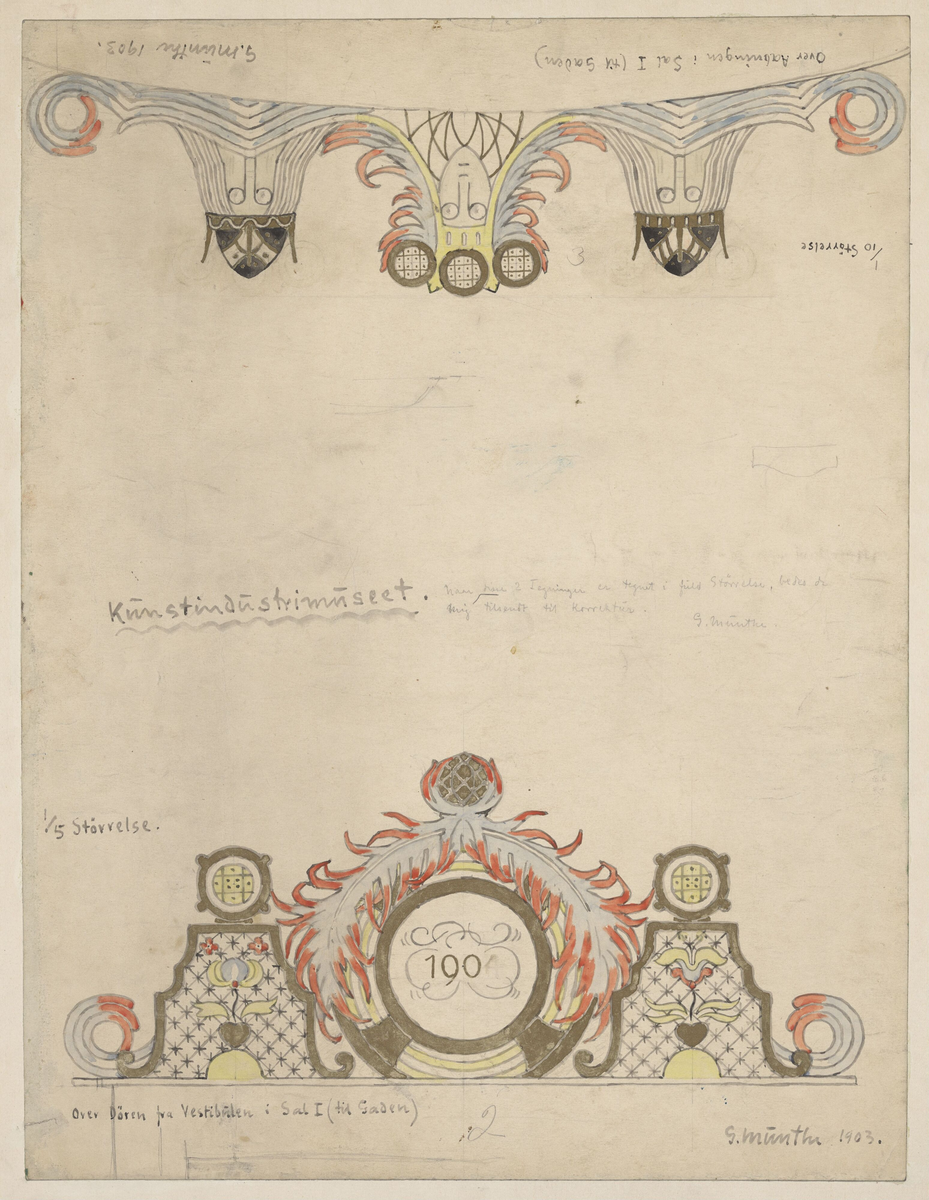 G. Munthe 1903.
Over Aabningen i Sal I (til Gaden)
1/10 Störrelse
3
Kunstindustrimuseet.
naar 2 Tegninger er tegnet i fuld Störrelse, bedes de
mig tilsendt til Korrektur.
G. Munthe.
1/5 Störrelse.
190
Over Dören fra Vestibulen i Sal I (til Gaden)
2
G. Munthe 1903.